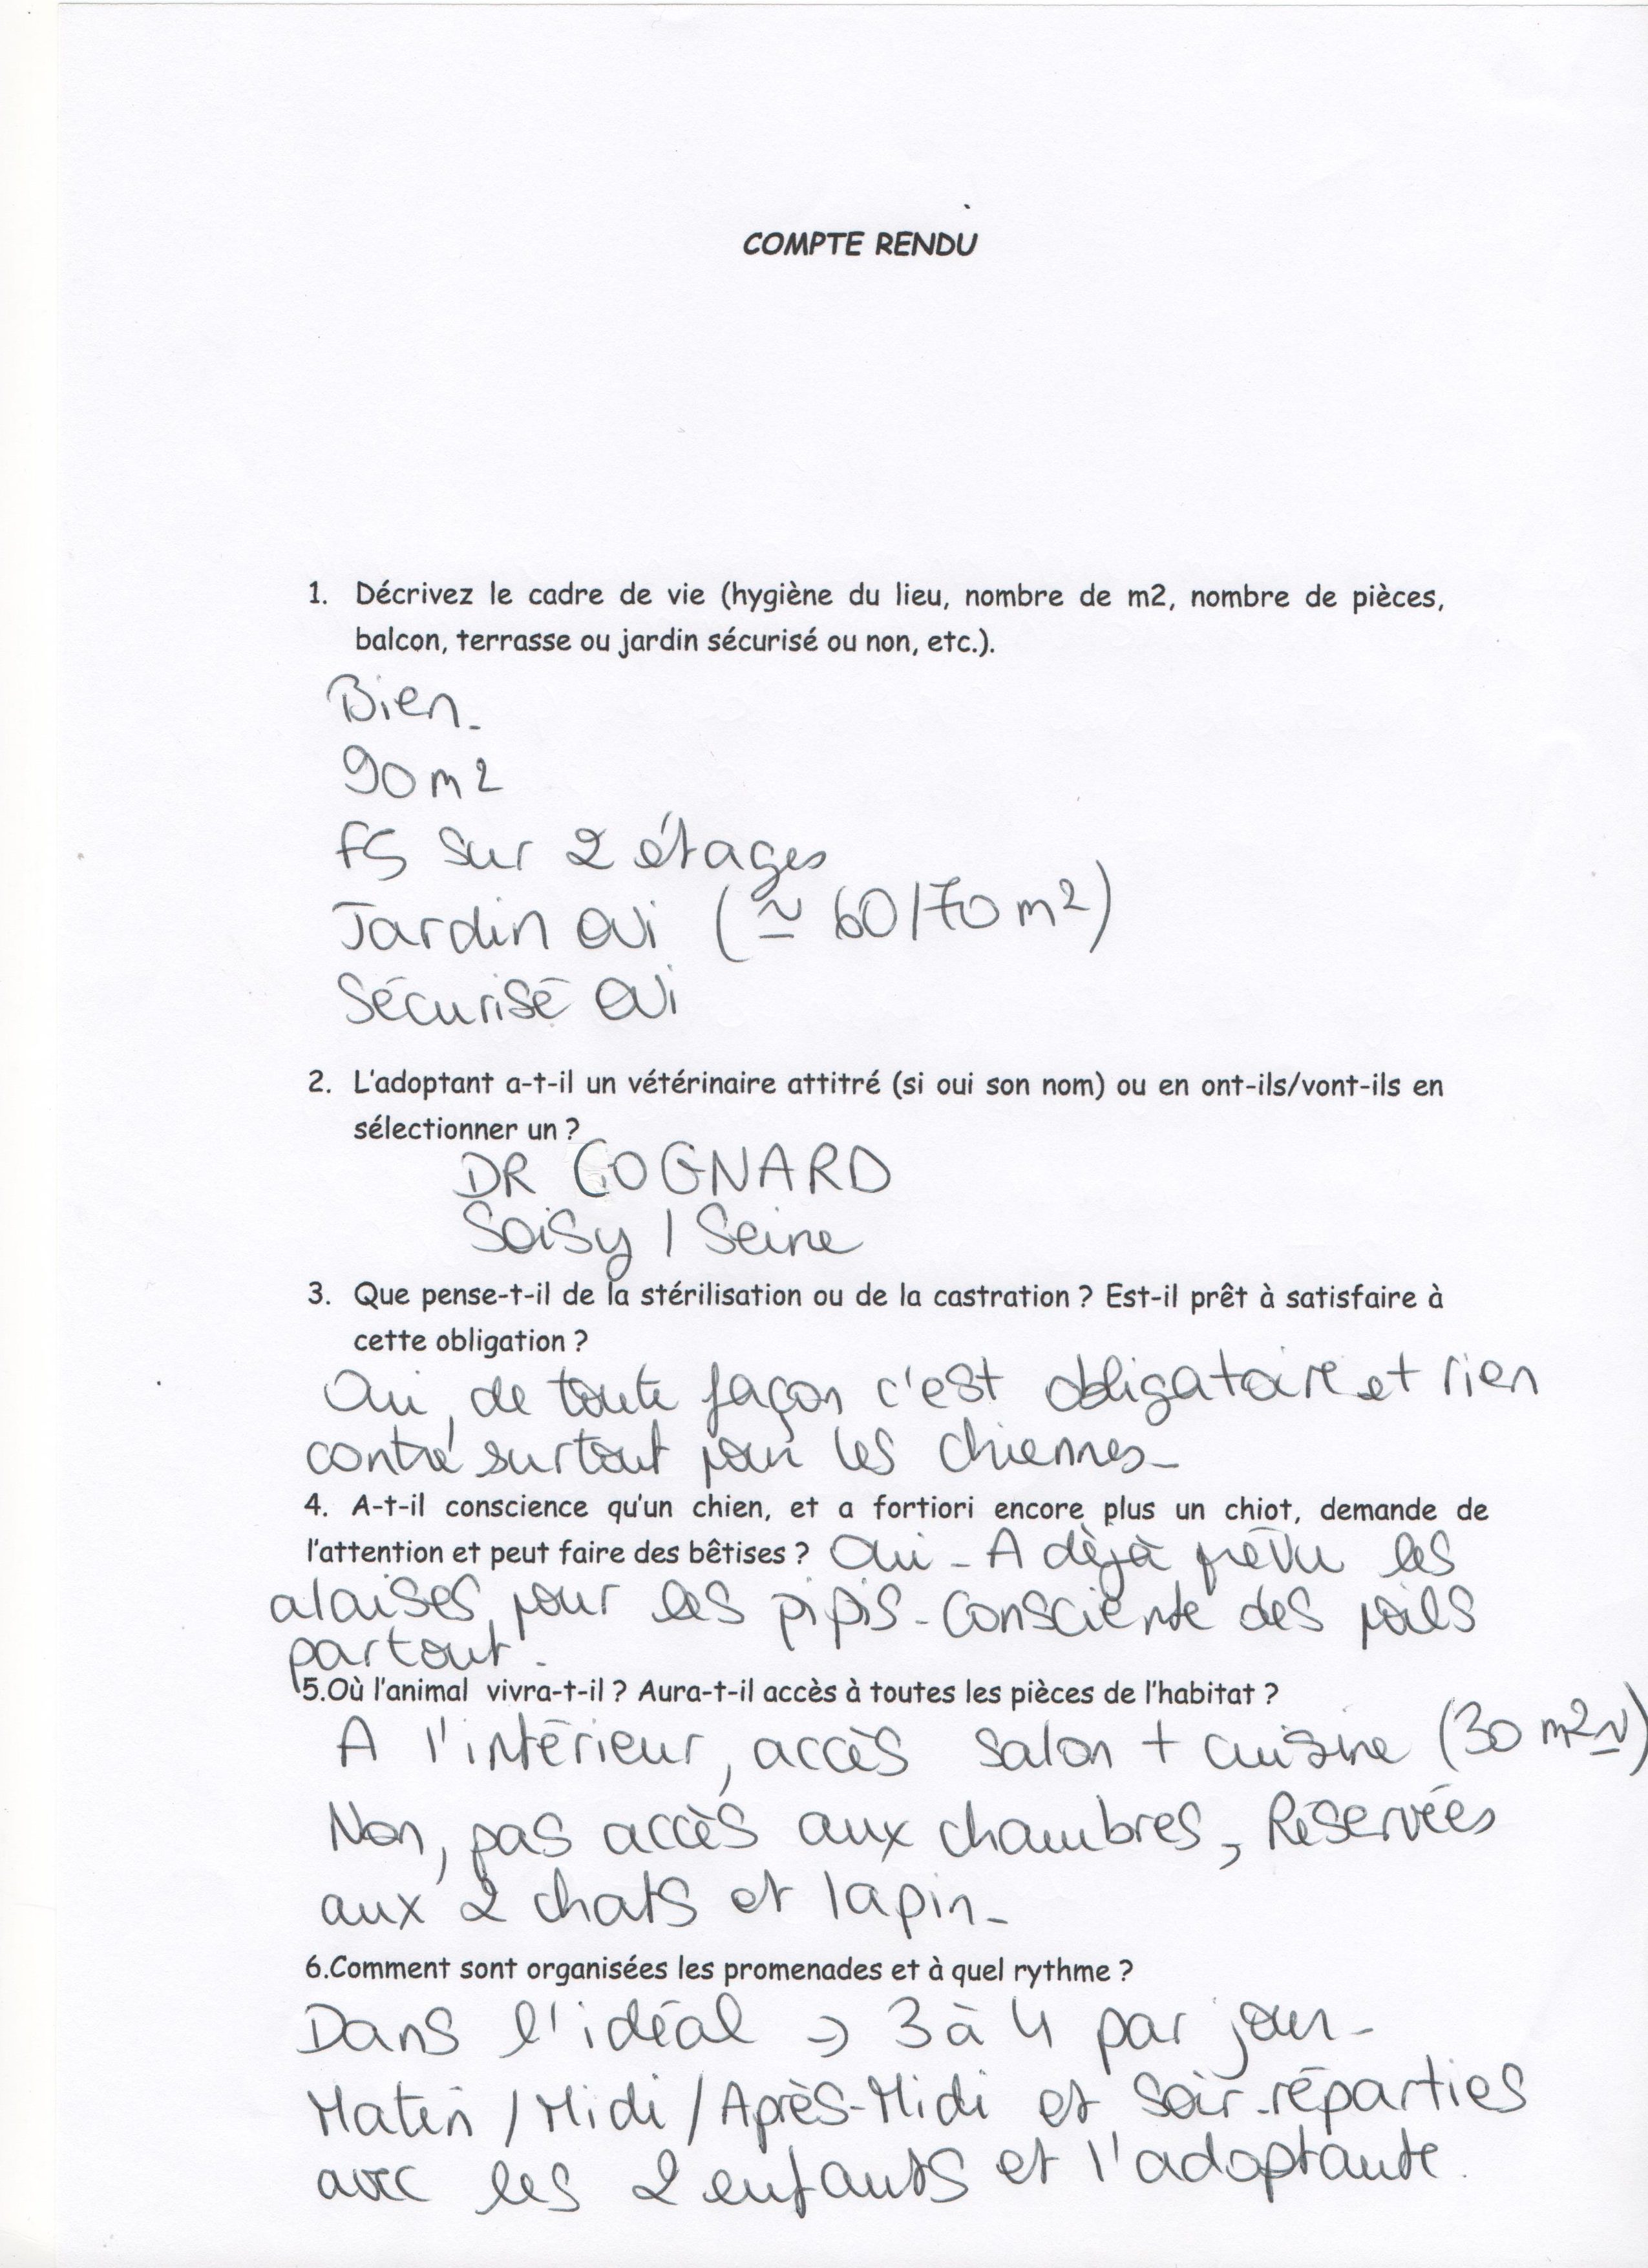 COMPTE RENDU
1. Décrivez le cadre de vie (hygiène du lieu, nombre de m2, nombre de pièces,
balcon, terrasse ou jardin sécurisé ou non, etc.).
Bien.
90 m2
F5 sur 2 étages
Jardin oui (≃ 60/70 m2)
Sécurisé oui
2. L'adoptant a-t-il un vétérinaire attitré (si oui son nom) ou en ont-ils/vont-ils en
sélectionner un ?
DR COGNARD
Soisy / Seine
3. Que pense-t-il de la stérilisation ou de la castration ? Est-il prêt à satisfaire à
cette obligation ?
Oui, de toute façon c'est obligatoire et rien
contre surtout pour les chiennes_
4. A-t-il conscience qu'un chien, et a fortiori encore plus un chiot, demande de
l'attention et peut faire des bêtises ? Oui - A déjà prévu les
alaises pour les pipis - Consciente des poils
partout.
5.Où l'animal vivra-t-il ? Aura-t-il accès à toutes les pièces de l'habitat ?
A l'intérieur, accès salon + cuisine (30 m2 ≃)
Non, pas accès aux chambres, Réservées
aux 2 chats et lapin_
6.Comment sont organisées les promenades et à quel rythme ?
Dans l'idéal → 3 à 4 par jour_
Matin / Midi / Après-Midi et Soir - réparties
avec les 2 enfants et l'adoptante.